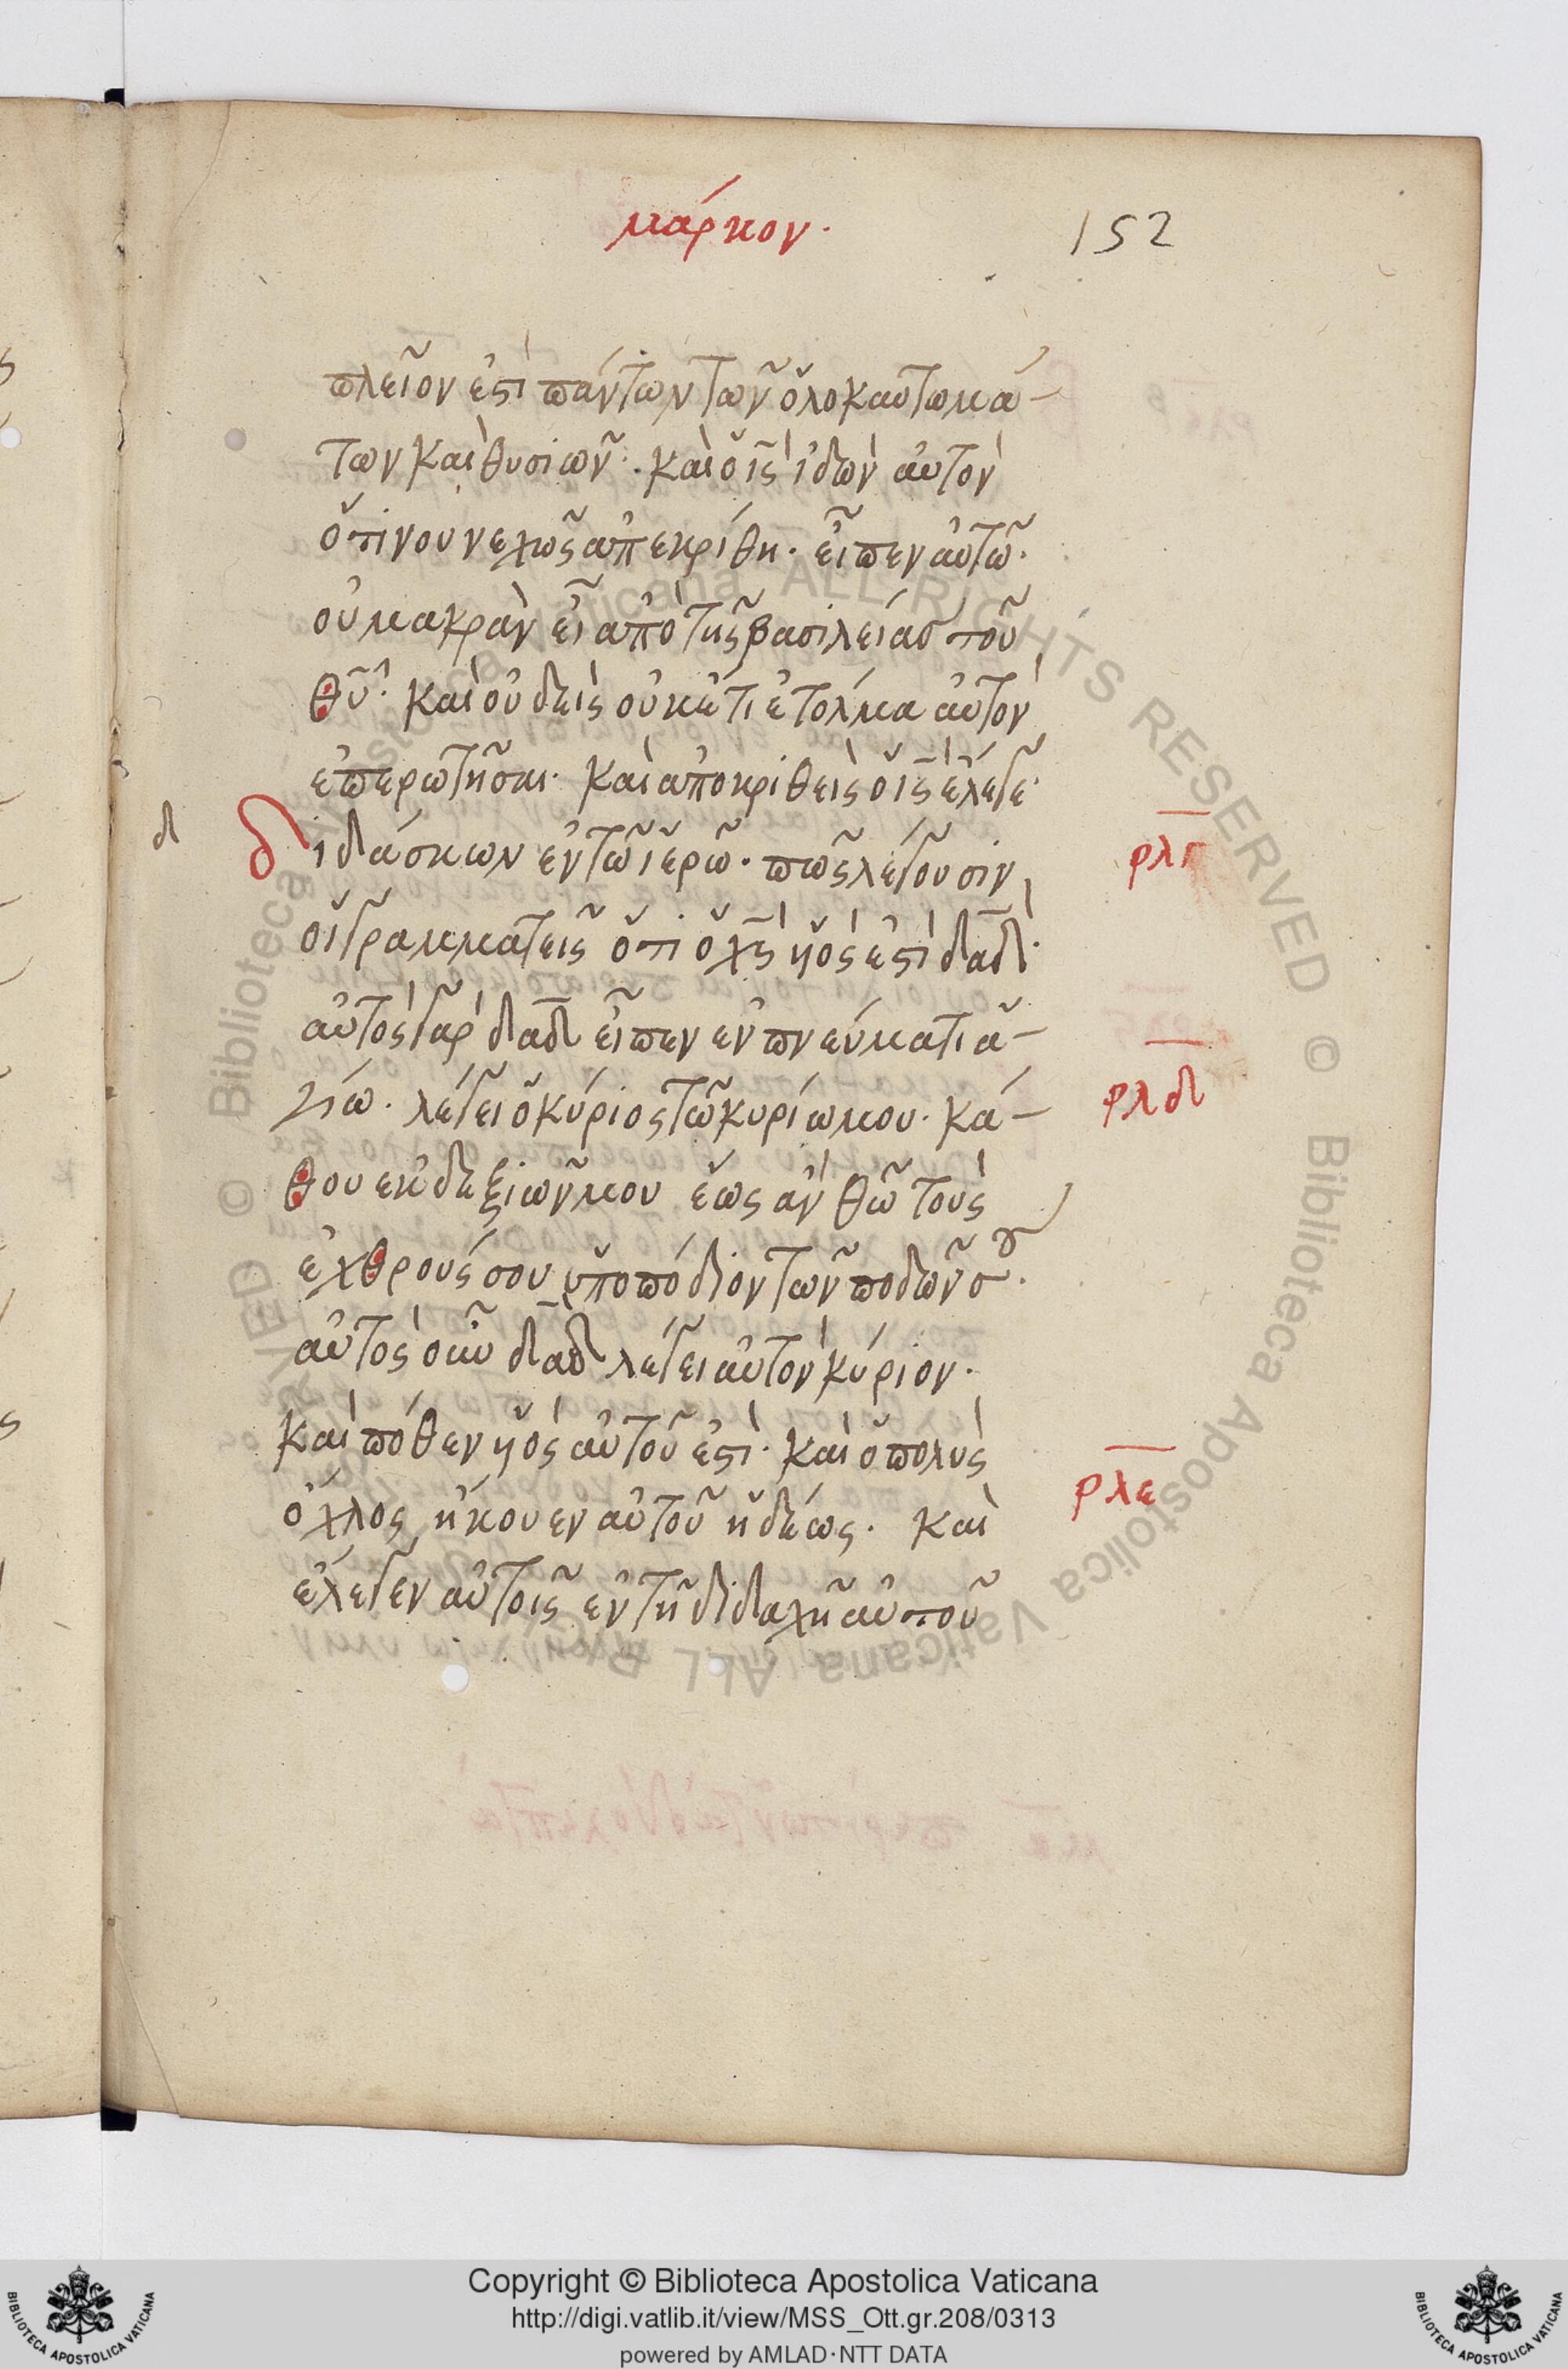 μάρκον.
152
πλεῖόν ἐστι πάντων τῶν ὁλοκαυτωμά-
των καὶ θυσιῶν. καὶ ὁ ις̅ ἰδὼν αὐτὸν
ὅτι νουνεχῶς ἀπεκρίθη. εἶπεν αὐτῶ.
οὐ μακρὰν εἶ ἀπὸ τῆς βασιλείας τοῦ
θυ̅. καὶ οὐδεὶς οὐκέτι ἐτόλμα αὐτὸν
ἐπερωτῆσαι. καὶ ἀποκριθεὶς ὁ ις̅ ἔλεγε
δ
διδάσκων ἐν τῶ ἱερῶ. πῶς λέγουσιν
ρλγ
οἱ γραμματεῖς ὅτι ὁ χς̅ υἱός ἐστι δαδ̅.
αὐτὸς γὰρ δαδ̅ εἶπεν ἐν πνεύματι ἁ-
γίω. λέγει ὁ κύριος τῶ κυρίω μου. κά-
ρλδ
θου ἐκ δεξιῶν μου ἕως ἂν θῶ τοὺς
ἐχθρούς σου ὑποπόδιον τῶν ποδῶν σου.
αὐτὸς οὖν δαδ̅ λέγει αὐτὸν κύριον.
καὶ πόθεν υἱὸς αὐτοῦ ἐστι. καὶ ὁ πολὺς
ρλε
ὄχλος ἤκουεν αὐτοῦ ἡδέως. καὶ
ἔλεγεν αὐτοῖς ἐν τῆ διδαχῆ αὐτοῦ
© Biblioteca Apostolica Vaticana ALL RIGHTS RESERVED © Biblioteca Apostolica Vaticana ALL RIGHTS RESERVED
Copyright © Biblioteca Apostolica Vaticana
http://digi.vatlib.it/view/MSS_Ott.gr.208/0313
powered by AMLAD·NTT DATA
BIBLIOTECA APOSTOLICA VATICANA
BIBLIOTECA APOSTOLICA VATICANA